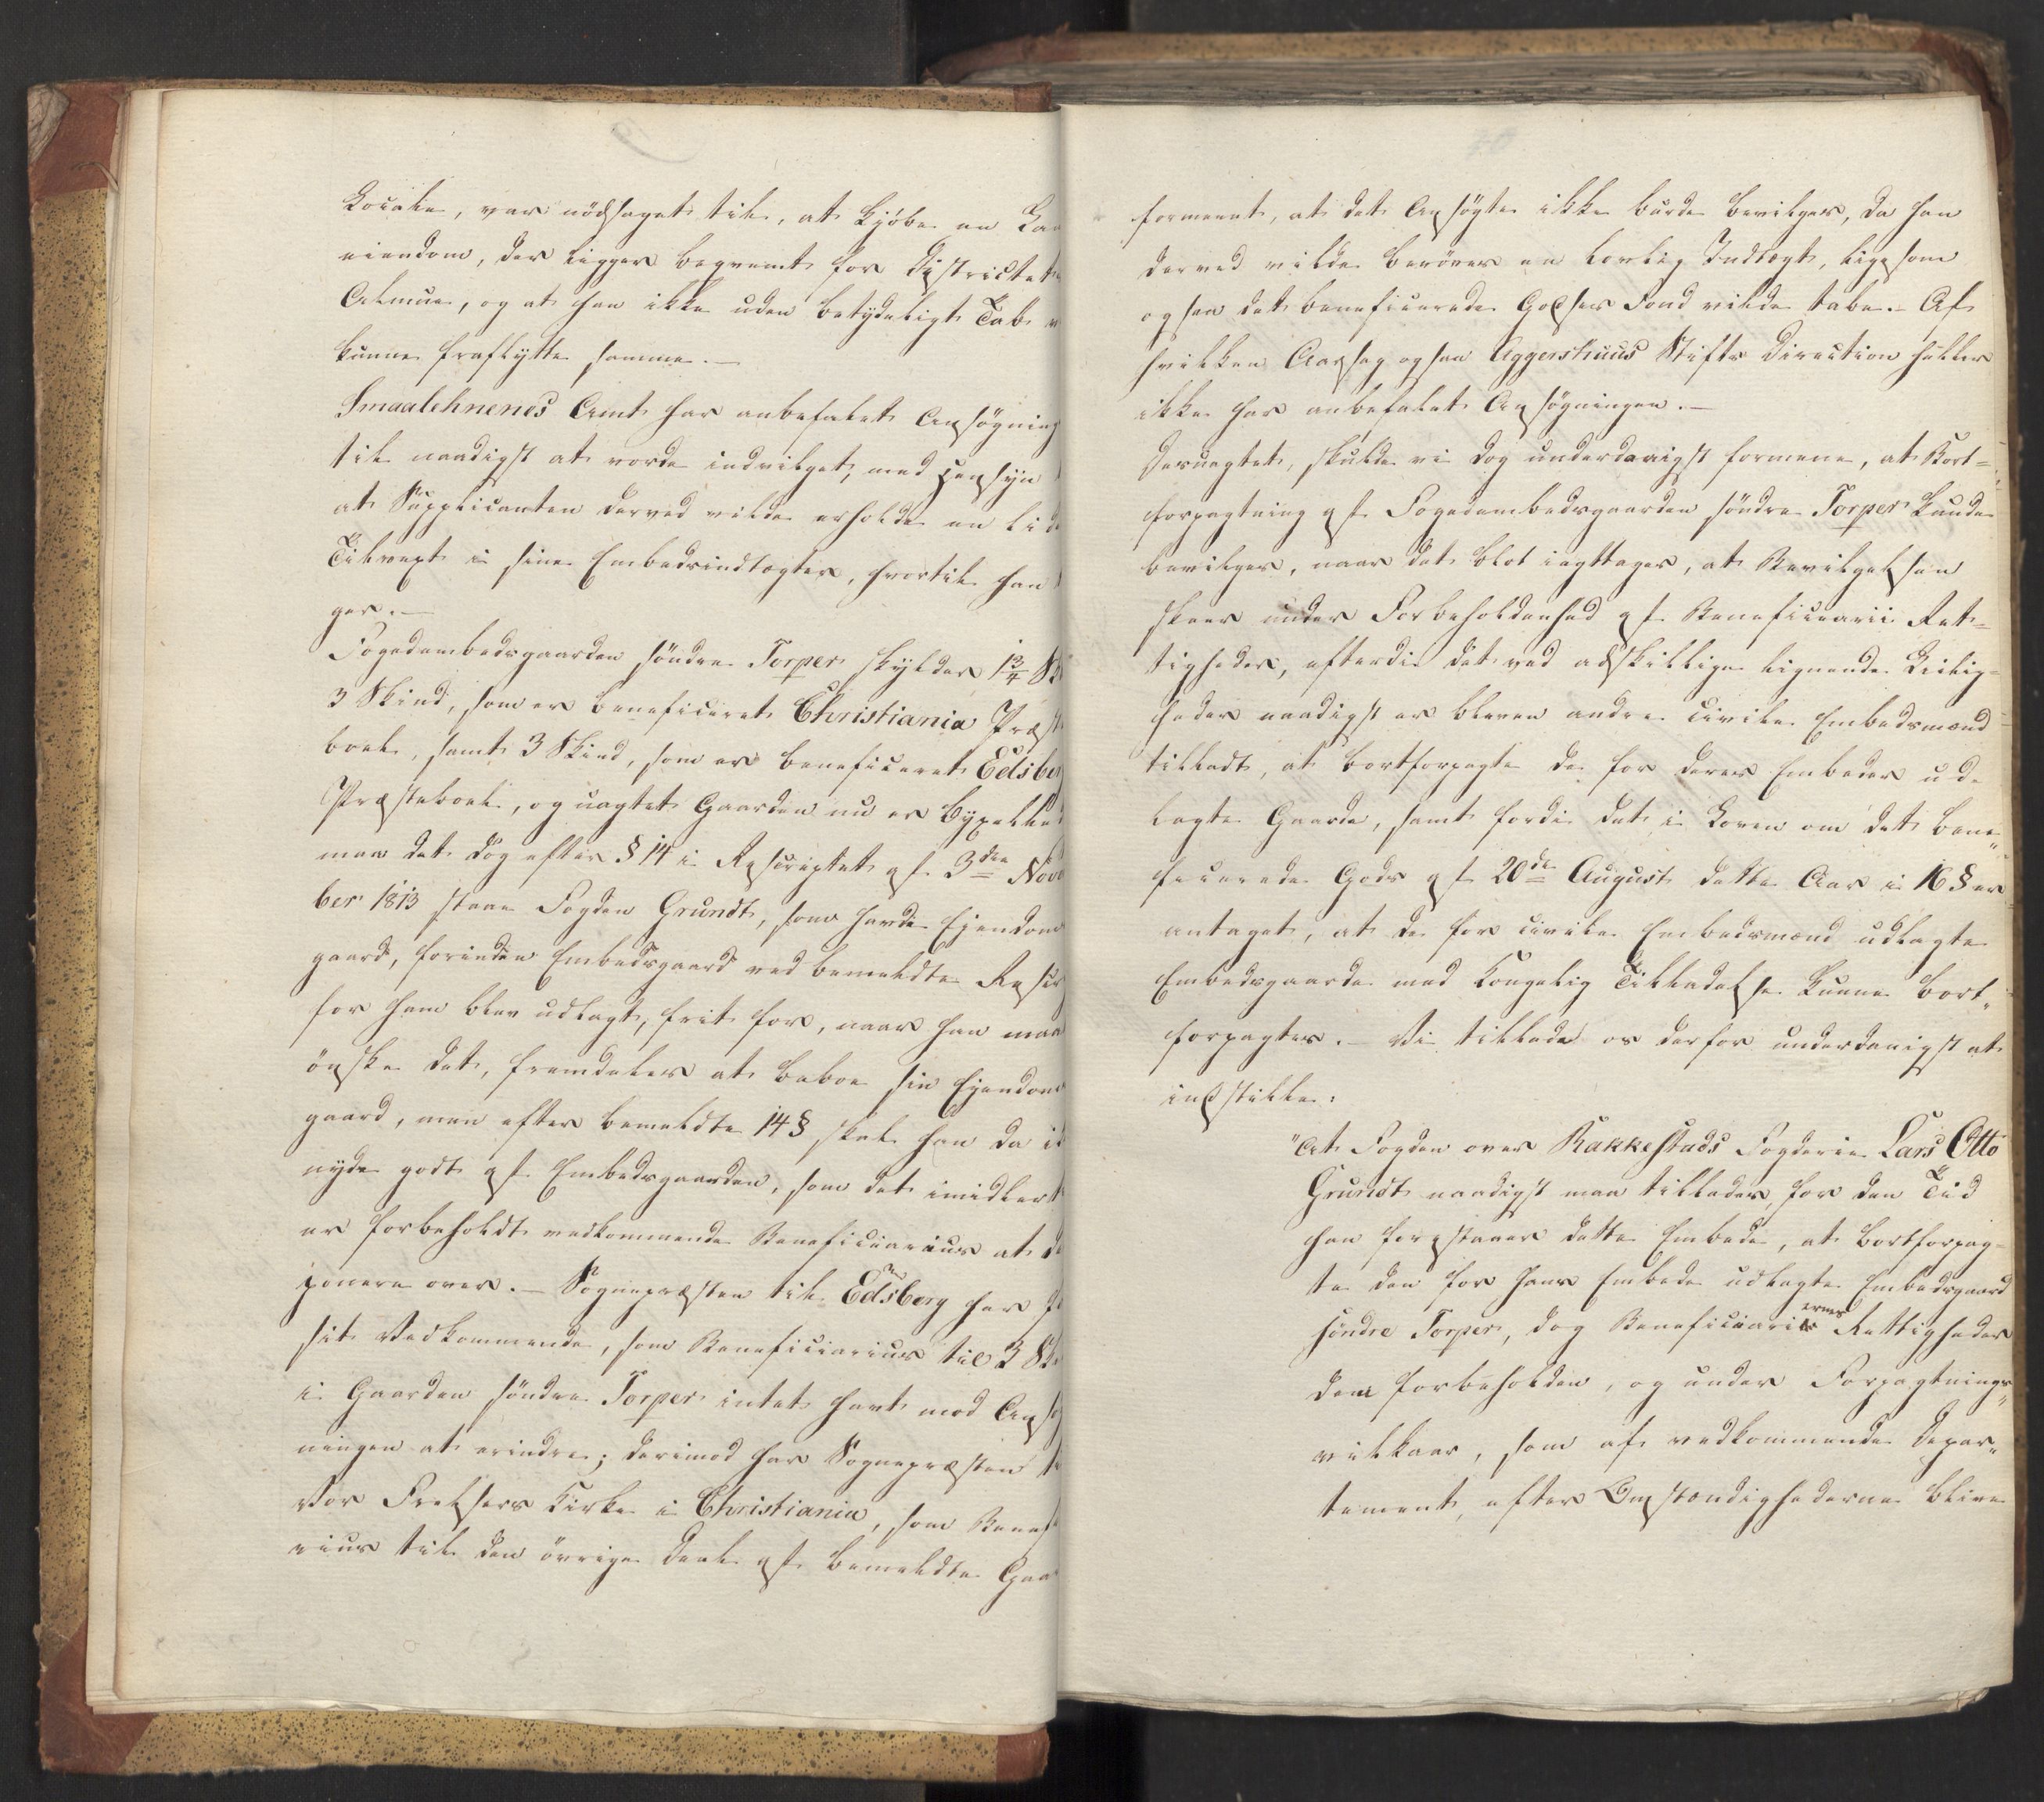 Locale, var nödsaget til, at kjöbe en
eiendom, der ligger beqvemt for Districtets
Almue, og at han ikke uden betydeligt Tab
kunne fraflytte samme.—
Smaalehnenes Amt har anbefalet Ansögning
til naadigst at vorde indvilget, med Hensyn
at Supplicanten derved vilde erholde en
Tilvext i sine Embedsindtægter, hvortil han
ger.—
Fogedembedsgaarden söndre Torper skylder 1 3/4
3 Skind, som er beneficeret Christiania Præste
boel, samt 3 Skind, som er beneficeret Edsberg
Præsteboel, og uagtet Gaarden nu er
maa det dog efter § 14 i Rescriptet af 3die Novem
ber 1813 staae Fogden Grundt, som havde Ejendoms
gaard, forinden Embedsgaard ved bemeldte Rescr
for ham blev udlagt, frit for, naar han maa
önske det, fremdeles at beboe sin Ejendoms
gaard, men efter bemeldte 14 § skal han da
nyde godt af Embedsgaarden, som det imidlert
er forbeholdt vedkommende Beneficiarius at
ponere over.— Sognepræsten til Edsberg har
sit Vedkommende, som Beneficiarius til 3
i Gaarden söndre Torper intet havt mod Ansög
ningen at erindre; derimod har Sognepræsten
Vor Frelsers Kirke i Christiania, som Benef
rius til den övrige Deel af bemeldte Gaa
formeent, at det Ansögte ikke burde bevilges, da han
derved vilde beröves en lovlig Indtægt, ligesom
ogsaa det beneficerede Godses Fond vilde tabe.— Af
hvilken Aarsag ogsaa Aggershuus Stifts Direction heller
ikke har anbefalet Ansögningen.—
Desuagtet, skulde vi dog underdanigst formene, at Bort=
forpagtning af Fogedembedsgaarden söndre Torper kunde
bevilges, naar det blot iagttages, at Bevilgelsen
skeer under Forbeholdenhed af Beneficiarii Ret=
tigheder, efterdi det ved adskillige lignende Leilig=
heder naadigst er bleven andre civile Embedsmænd
tilladt, at bortforpagte de for deres Embeder ud=
lagte Gaarde, samt fordi det i Loven om det bene
ficerede Gods af 20de August dette Aar i 16 § er
antaget, at de for civile Embedsmænd udlagte
Embedsgaarde med Kongelig Tilladelse kunne bort„
forpagtes.— Vi tillade os derfor underdanigst at
indstille:
"At Fogden over Rakkestads Fogderie Lars Otto
Grundt naadigst maa tillades, for den Tid
han forestaaer dette Embede, at bortforpag=
te den for hans Embede udlagte Embedsgaard
söndre Torper, dog Beneficiariernes Rettigheder
dem forbeholden, og under Forpagtnings„
vilkaar, som af vedkommende Depar„
tement, efter Omstændighederne blive